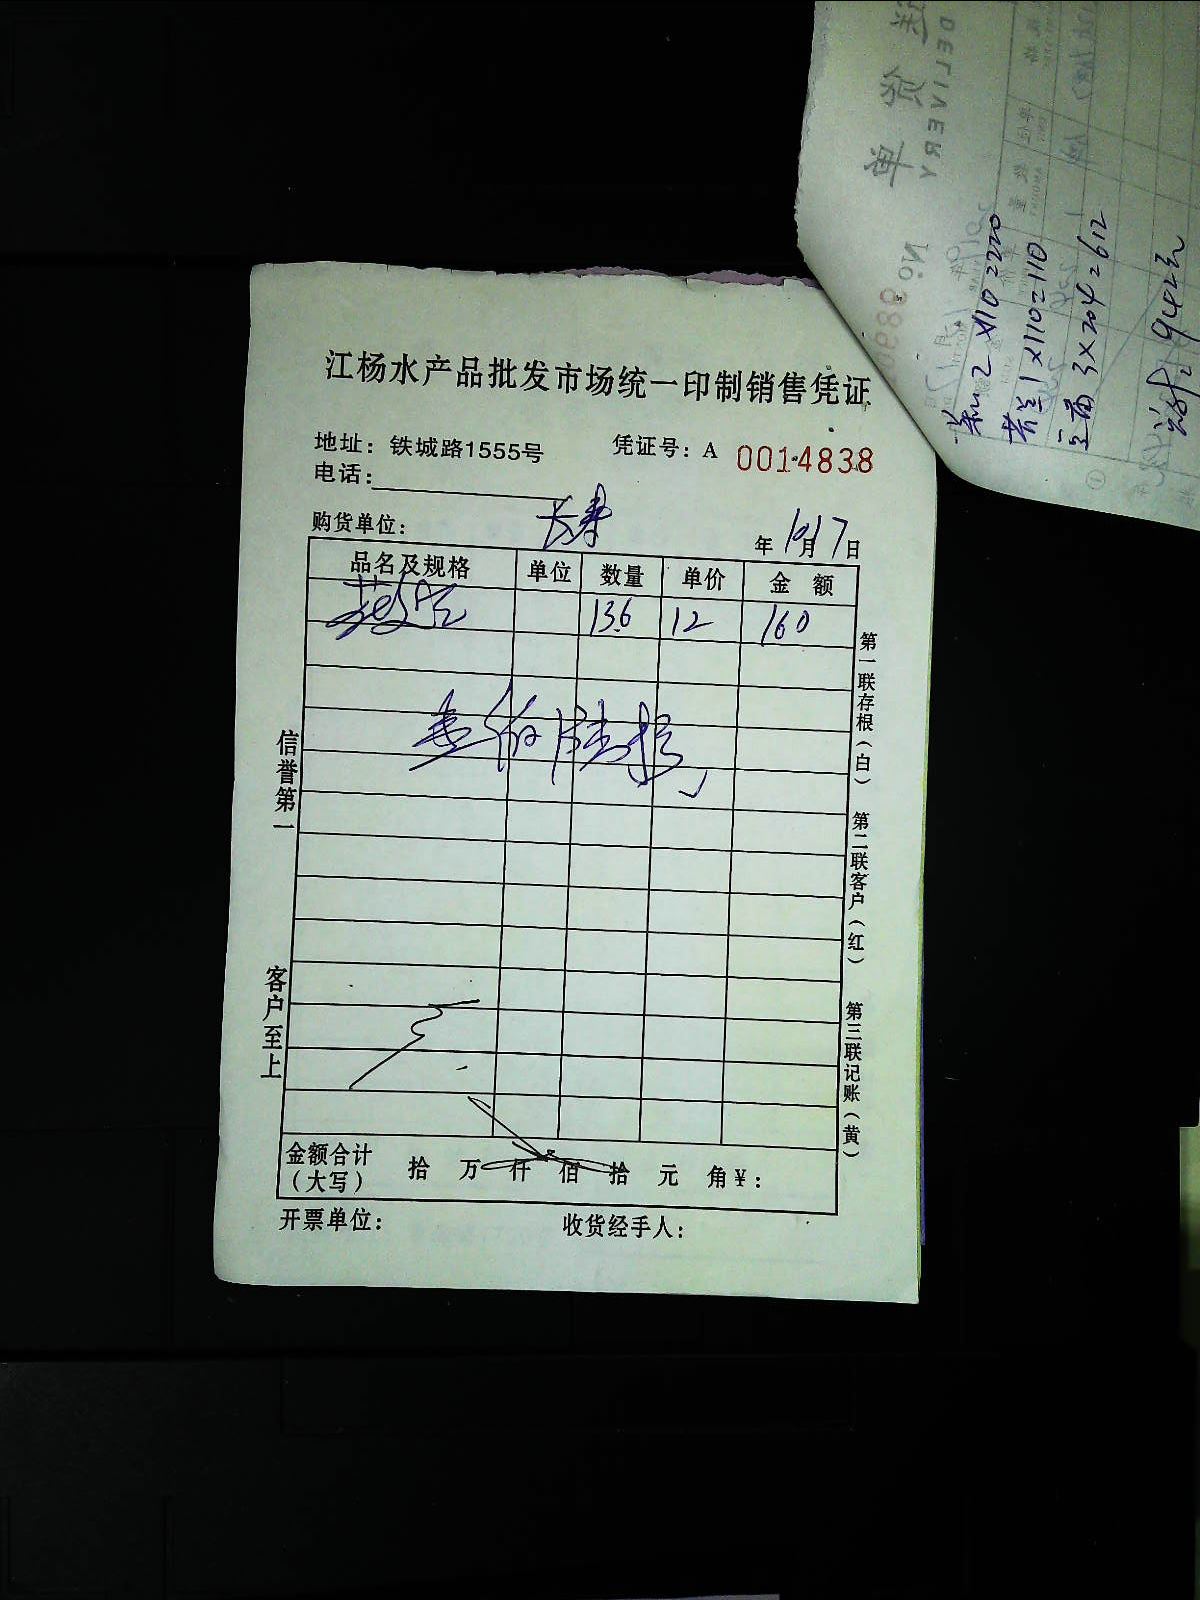 江杨水产品批发市场统一印制销售凭证
地址：铁城路1555号 凭证号：A 0014838
电话：
购货单位： 年 10月17日
品名及规格 单位 数量 单价 金 额
13.6 12 160
壹佰陆拾
金额合计（大写） 拾 万 仟 佰 拾 元 角 ¥：
开票单位： 收货经手人：
信誉第一 客户至上
第一联存根（白） 第二联客户（红） 第三联记账（黄）
DELIVERY
2×110=220
1×110=110
3×204=612
942元